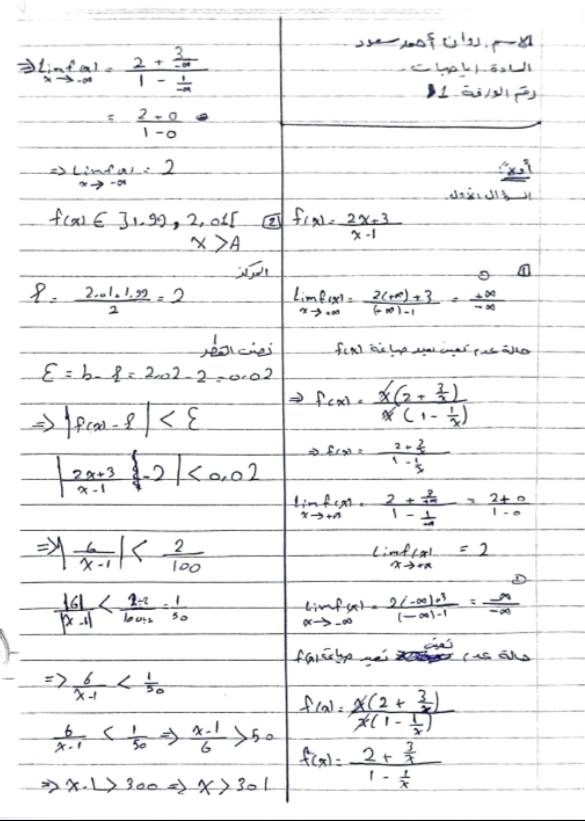 الاسم: روان أحمد سعود
المادة: رياضيات
رقم الورقة 1
أولاً:
السؤال الأول
f(x) = 2x+3 / x-1
① 1
Lim f(x) x→+∞ = 2(+∞)+3 / (+∞)-1 = +∞ / -∞
حالة عدم تعيين نعيد صياغة f(x)
⇒ f(x) = x(2 + 3/x) / x(1 - 1/x)
⇒ f(x) = 2 + 3/x / 1 - 1/x
Lim f(x) x→+∞ = 2 + 3/+∞ / 1 - 1/+∞ = 2+0 / 1-0
Lim f(x) x→+∞ = 2
②
Lim f(x) x→-∞ = 2(-∞)+3 / (-∞)-1 = -∞ / -∞
حالة عدم تعيين نعيد صياغة f(x)
f(x) = x(2 + 3/x) / x(1 - 1/x)
f(x) = 2 + 3/x / 1 - 1/x
⇒ Lim f(x) x→-∞ = 2 + 3/-∞ / 1 - 1/-∞
= 2+0 / 1-0
⇒ Lim f(x) x→-∞ = 2
2 f(x) ∈ ]1.99, 2,01[
x > A
المركز
ℓ = 2,01+1,99 / 2 = 2
نصف القطر
ε = b - ℓ = 2,02 - 2 = 0,02
⇒ |f(x) - ℓ| < ε
|2x+3 / x-1 - 2| < 0,02
⇒ |6 / x-1| < 2 / 100
|6| / |x-1| < 2÷2 / 100÷2 = 1 / 50
⇒ 6 / x-1 < 1 / 50
6 / x-1 < 1 / 50 ⇒ x-1 / 6 > 50
⇒ x-1 > 300 ⇒ x > 301